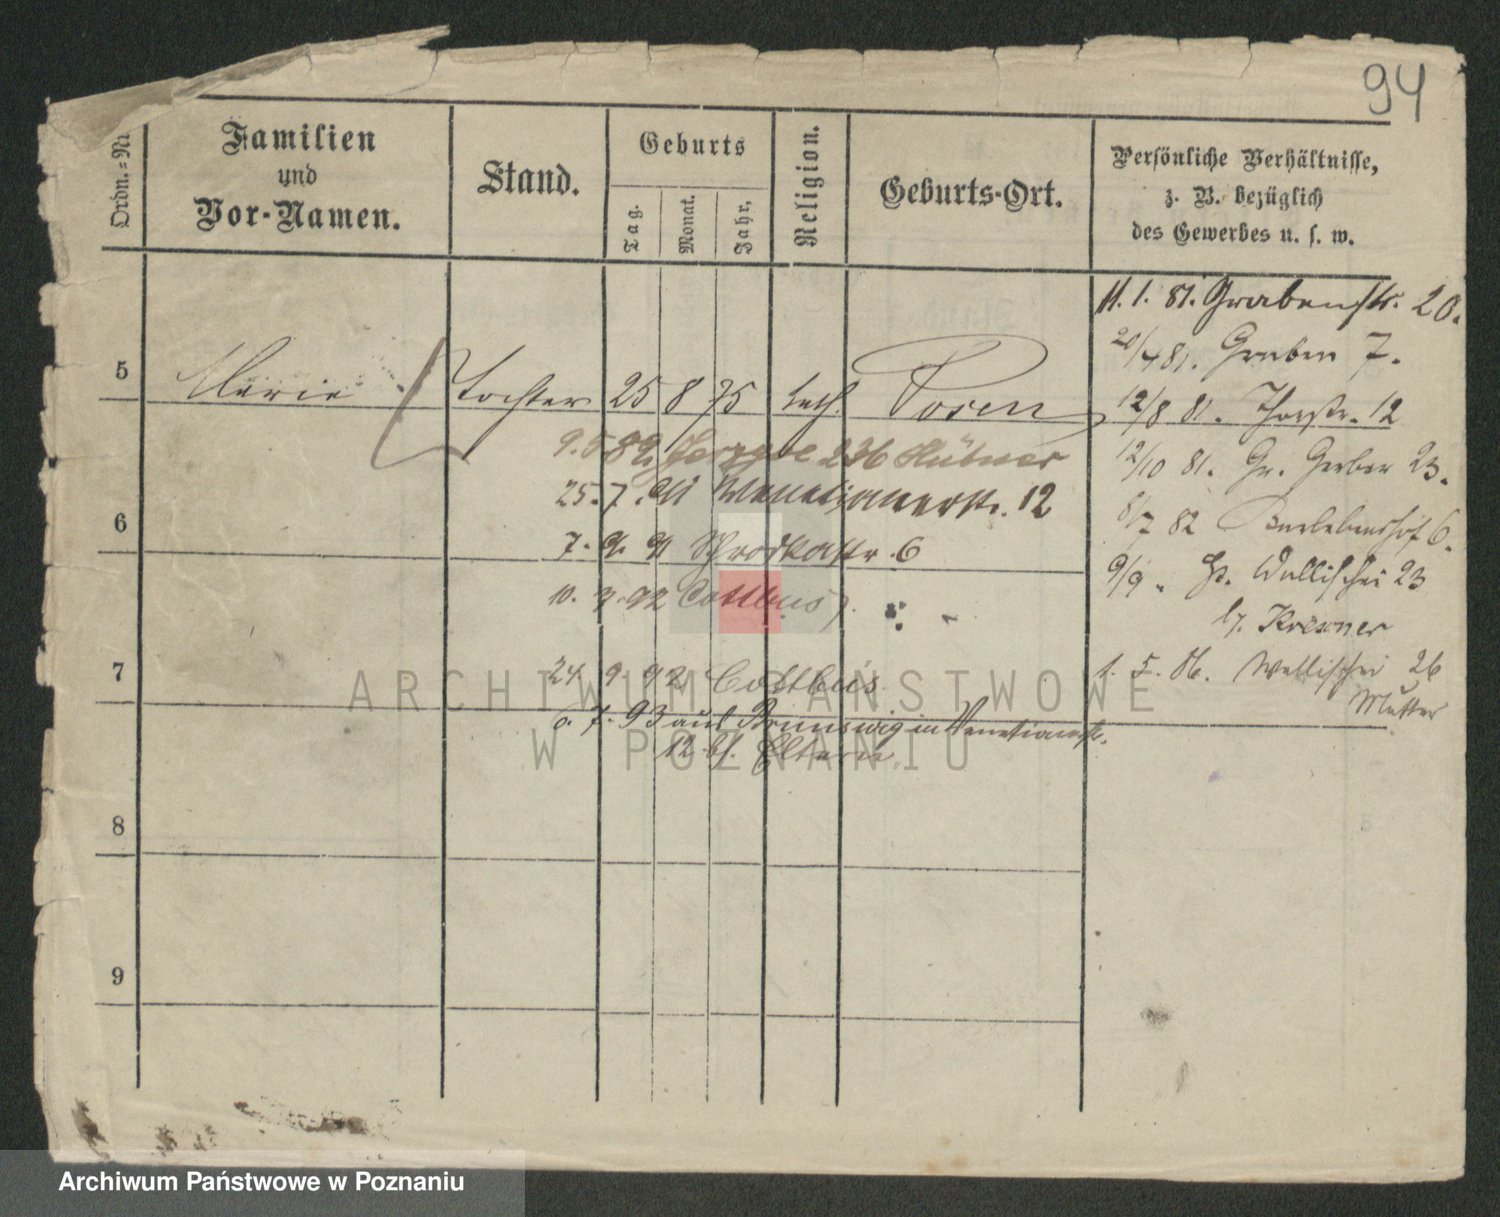 94
Ordn.-Nr.
Familien
und
Vor-Namen.
Stand.
Geburts
Tag.
Monat.
Jahr.
Religion.
Geburts-Ort.
Persönliche Verhältnisse,
z. B. bezüglich
des Gewerbes u. s. w.
11. 1. 81. Grabenstr. 20.
20/4 81. Graben 7.
5 Marie Tochter 25 8 75 kath. Posen
12/8 81. Thorstr. 12
12/10 81. Gr. Gerber 23.
9. 5 89. 236 Hübner
25. 7. 91 Venetianerstr. 12
6
8/7 82 6.
7. 9. 91 Schrodkastr. 6
9/9. Wallischei 23
10. 92 Cottbus
b/. Krexner
7
24. 9. 92 Cottbus
1. 5. 86. Wallischei 26
Mutter
6. 7. 93 aus Brunswig in Venetianstr.
12 b/. Eltern
8
9
ARCHIWUM PAŃSTWOWE
W POZNANIU
Archiwum Państwowe w Poznaniu